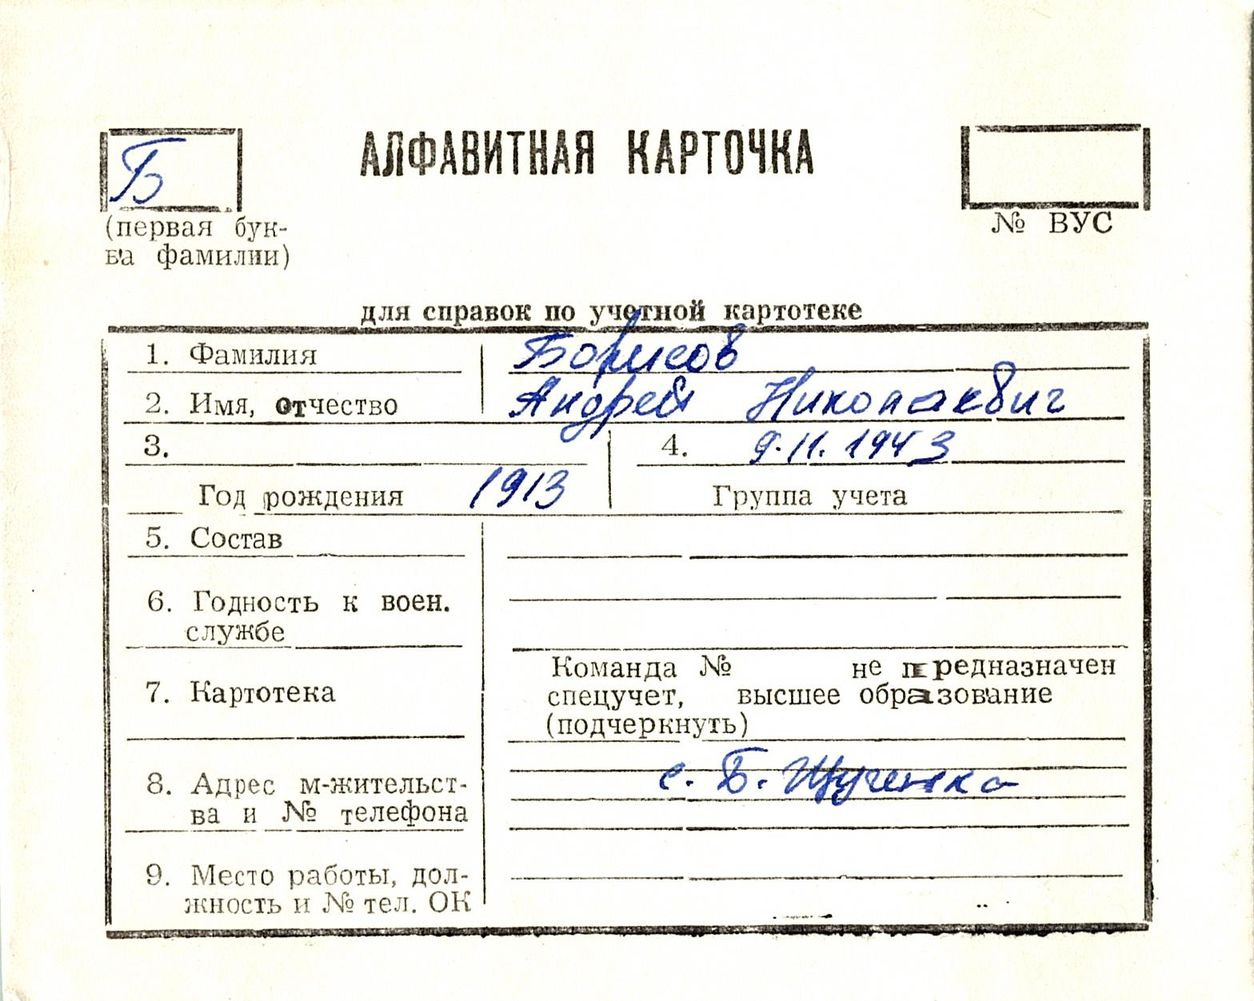 АЛФАВИТНАЯ КАРТОЧКА
Б
(первая бук-
ва фамилии)
№ ВУС
для справок по учетной картотеке
1. Фамилия Борисов
2. Имя, отчество Андрей Николаевич
3. 4. 9.11.1943
Год рождения 1913 Группа учета
5. Состав
6. Годность к воен.
службе
7. Картотека
Команда № не предназначен
спецучет, высшее образование
(подчеркнуть)
8. Адрес м-жительст-
ва и № телефона
с. Б. Щученка
9. Место работы, дол-
жность и № тел. ОК